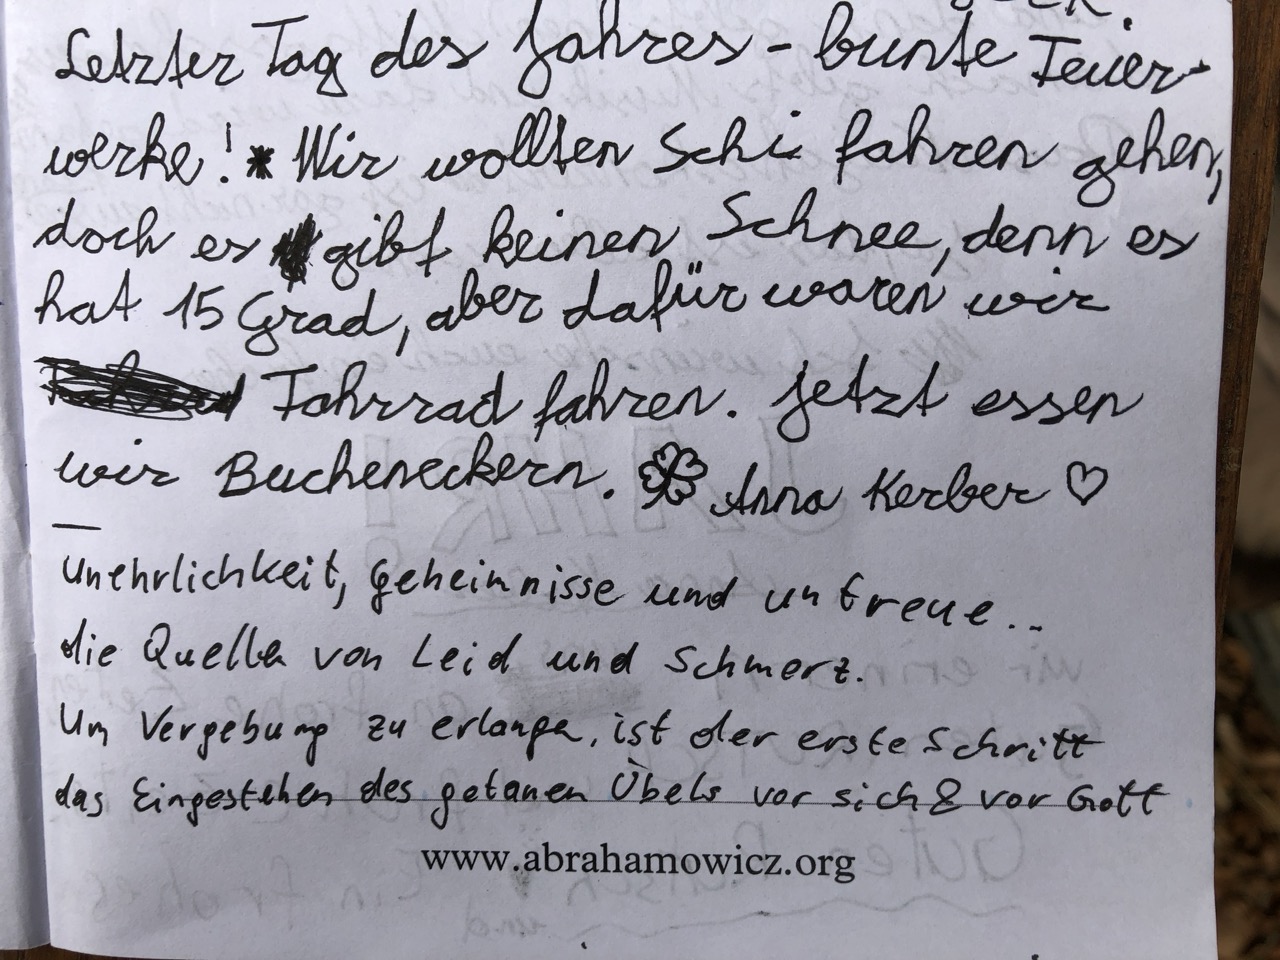 Letzter Tag des Jahres - bunte Feuer-
werke! * Wir wollten Schi fahren gehen,
doch es gibt keinen Schnee, denn es
hat 15 Grad, aber dafür waren wir
Fahrrad fahren. Jetzt essen
wir Bucheneckern. Anna Kerber ♡
—
Unehrlichkeit, Geheimnisse und untreue...
die Quelle von Leid und Schmerz.
Um Vergebung zu erlangen, ist der erste Schritt
das Eingestehen des getanen Übels vor sich & vor Gott
www.abrahamowicz.org